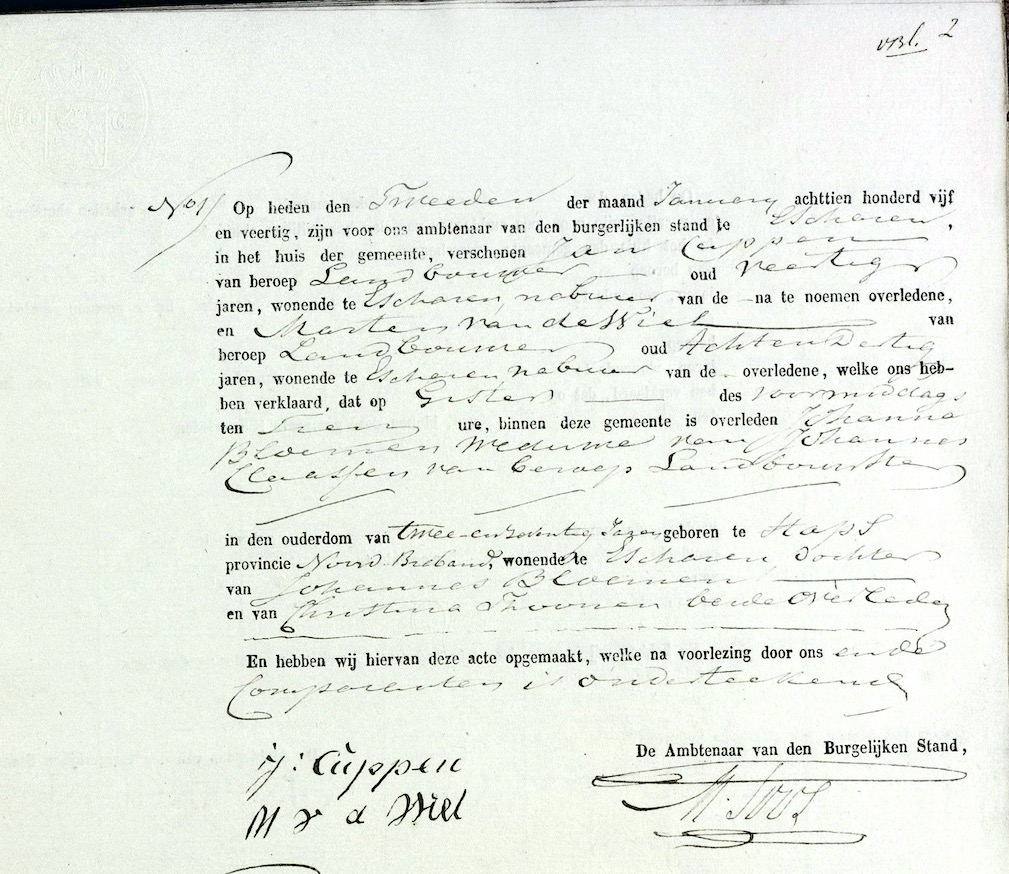 vbl. 2
No 1 Op heden den Tweeden der maand January achttien honderd vijf
en veertig, zijn voor ons ambtenaar van den burgerlijken stand te Escharen,
in het huis der gemeente, verschenen Jan Cuppen
van beroep Landbouwer oud veertig
jaren, wonende te Escharen nabuur van de na te noemen overledene,
en Marten van de Wiel van
beroep Landbouwer oud Achten Dertig
jaren, wonende te Escharen nabuur van de overledene, welke ons heb-
ben verklaard, dat op Gister des voormiddags
ten tien ure, binnen deze gemeente is overleden Johanna
Bloemen Weduwe van Johannes
Claassen van beroep Landbouwster
in den ouderdom van twee en zeventig Jaren geboren te Haps
provincie Noord Braband, wonende te Escharen Dochter
van Johannes Bloemen
en van Christina Thoonen beide Overleden
En hebben wij hiervan deze acte opgemaakt, welke na voorlezing door ons ende
Comparanten is onderteekend
De Ambtenaar van den Burgelijken Stand,
J: Cuppen
M v d Wiel